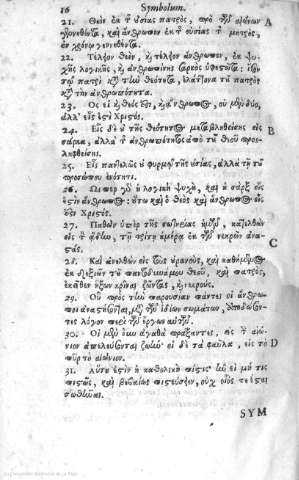 16 Symbolum.
21. Θεὸν ἐκ τ οὐσίας πατρὸς, πρὸ τῶν αἰώνων A
γεννηθέντα, καὶ ἄνθρωπον ἐκ τ οὐσίας τ μητρὸς,
ἐν χρόνῳ γεννηθέντα.
22. Τέλειον Θεὸν, καὶ τέλειον ἄνθρωπον, ἐκ ψυ-
χῆς λογικῆς, καὶ ἀνθρωπίνης σαρκὸς
τῷ πατρὶ κτ τὴν θεότητα, ἐλάττονα τῦ πατρὸς
κτ τὴν ἀνθρωπότητα.
23. Ὃς εἰ καὶ Θεὸς ἐστι, καὶ ἄνθρωπος, οὐ μὴν δύο,
ἀλλ' εἷς ἐστι Χριστός.
24. Εἷς δὲ οὐ τῆς θεότητος μεταβληθείσης εἰς B
σάρκα, ἀλλὰ τ ἀνθρωπότητος ὑπὸ τῦ Θεοῦ προσ-
ληφθείσης.
25. Εἷς παντελῶς οὐ φυρμῷ τῆς οὐσίας, ἀλλὰ τῇ τῦ
προσώπου ἑνότητι.
26. Ὥσπερ γὰρ ἡ λογικὴ ψυχὴ, καὶ ἡ σὰρξ εἷς
ἐστὶν ἄνθρωπος· οὕτω καὶ ὁ Θεὸς καὶ ἄνθρωπος εἷς
ἐστι Χριστός.
27. Παθὼν ὑπὲρ τῆς σωτηρίας ἡμῶν, κατελθὼν
εἰς τ ᾅδην, τῇ τρίτῃ ἡμέρᾳ ἐκ τῶν νεκρῶν ἀνα-
στάς. C
28. Καὶ ἀνελθὼν εἰς τοὺς οὐρανοὺς, καὶ καθήμενος
ἐκ δεξιῶν τῦ παντοδυνάμου Θεοῦ, καὶ πατρὸς,
ἐκεῖθεν ἥξων κρῖναι ζῶντας, καὶ νεκρούς.
29. Οὗ πρὸς τὴν παρουσίαν πάντες οἱ ἄνθρω-
ποι ἀναστήσονται, μετὰ τῶν ἰδίων σωμάτων, ἀποδώσον-
τες λόγον περὶ τῶν ἔργων αὐτῶν.
30. Οἱ μὲν οὖν ἀγαθὰ πράξαντες, εἰς τ αἰώ-
νιον ἀπελεύσονται ζωὴν· οἱ δὲ τὰ φαῦλα, εἰς τὸ D
πῦρ τὸ αἰώνιον.
31. Αὕτη ἐστὶν ἡ καθολικὴ πίστις· ἣν εἰ μή τις
πιστῶς, καὶ βεβαίως πιστεύσειεν, οὐχ οἷος τε ἔσται
σωθῆναι.
SYM